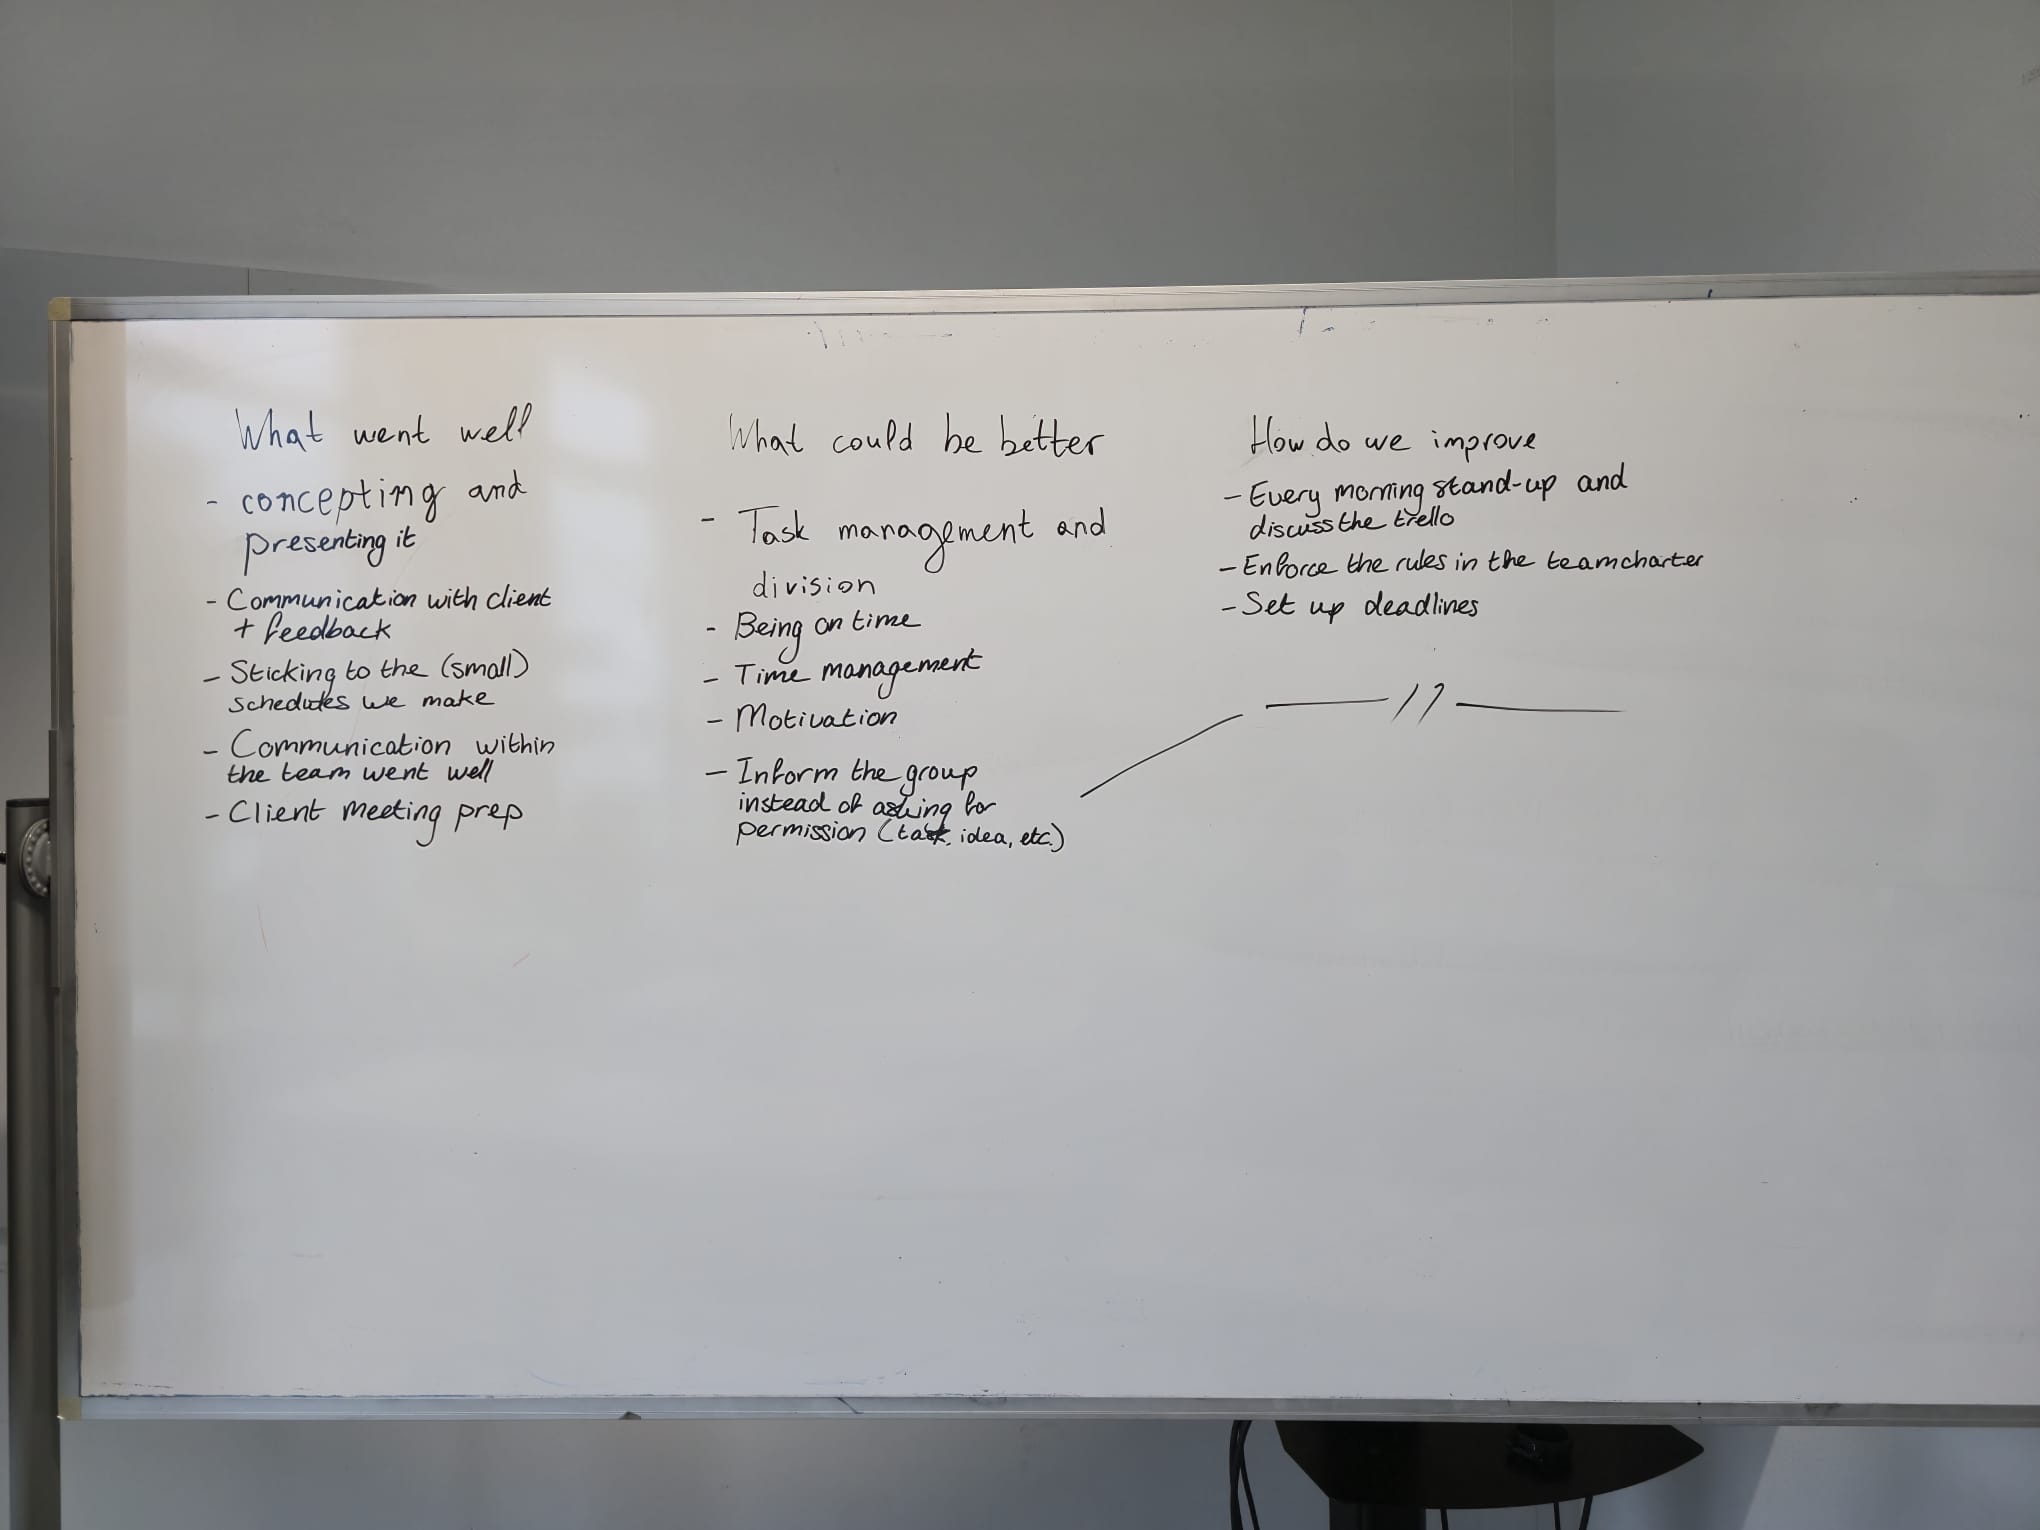 What went well
- concepting and
presenting it
- Communication with client
+ feedback
- Sticking to the (small)
schedules we make
- Communication within
the team went well
- Client meeting prep
What could be better
- Task management and
division
- Being on time
- Time management
- Motivation
- Inform the group
instead of asking for
permission (task, idea, etc.)
How do we improve
- Every morning stand-up and
discuss the trello
- Enforce the rules in the teamcharter
- Set up deadlines
— 11 —